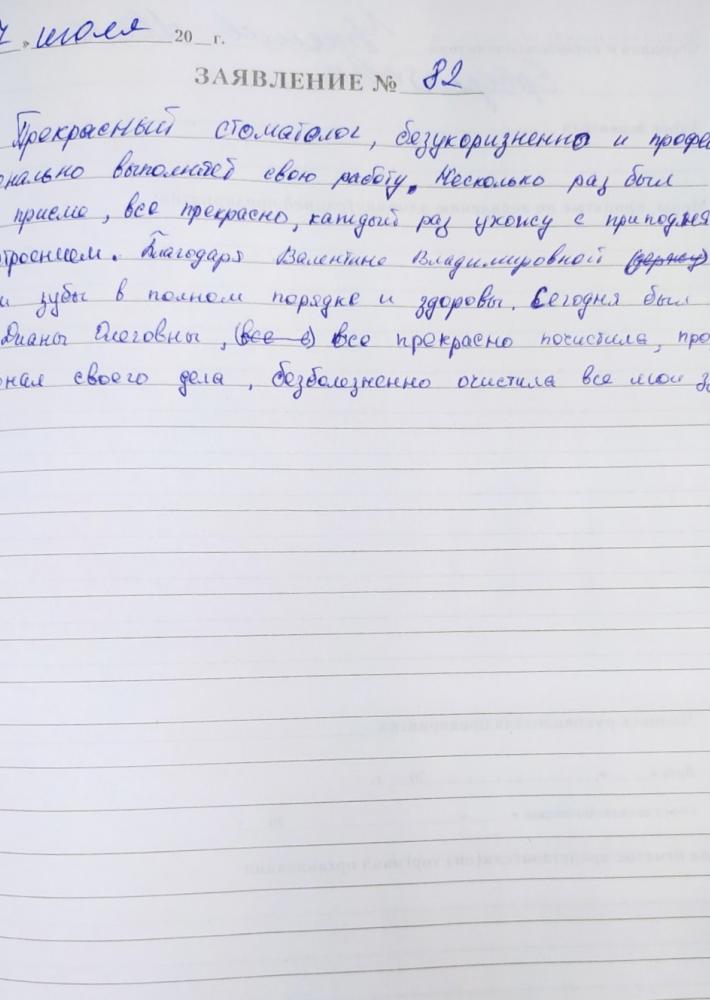 » июля 20__г.
ЗАЯВЛЕНИЕ № 82
Прекрасный стоматолог, безукоризненно и профе
онально выполняет свою работу. Несколько раз был
приеме, все прекрасно, каждый раз ухожу с приподня
строением. Благодаря Валентине Владимировной (держу)
и зубы в полном порядке и здоровы. Сегодня был
Дианы Олеговны, (все е) все прекрасно почистила, про
онал своего дела, безболезненно очистила все мои зу